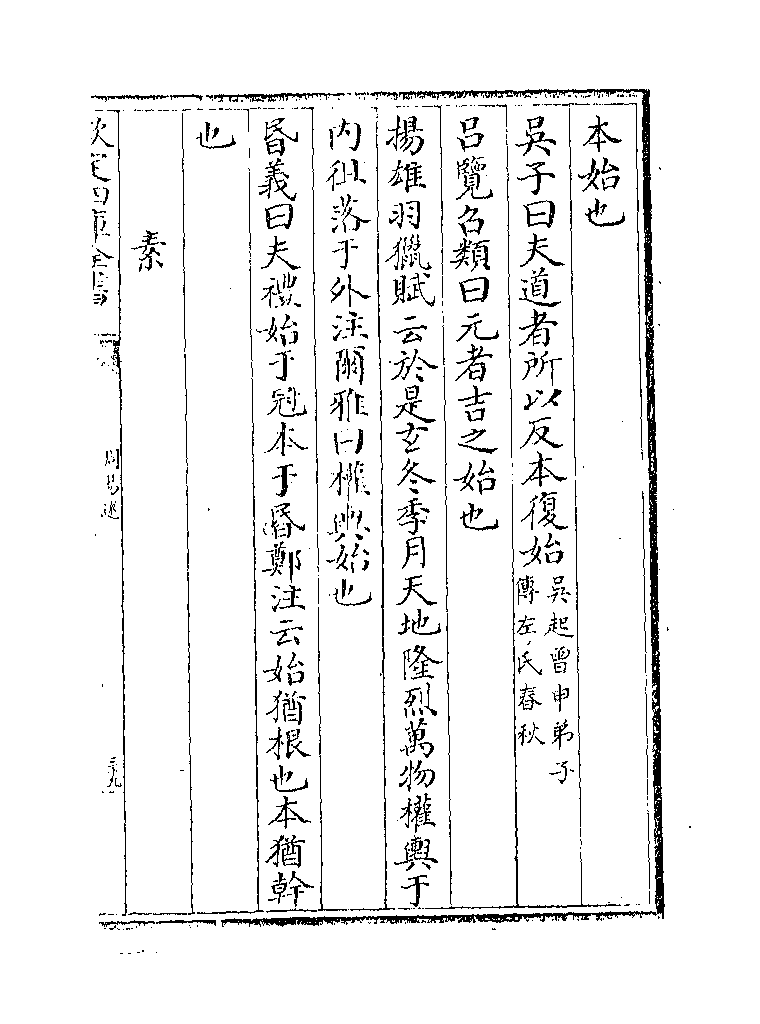 本始也
吳子曰夫道者所以反本復始吳起曽申弟子傳左氏春秋
吕覽名類曰元者吉之始也
揚雄羽獵賦云於是玄冬季月天地隆烈萬物權輿于
内徂落于外注爾雅曰權輿始也
昏義曰夫禮始于冠本于昬鄭注云始猶根也本猶幹
也
素
欽定四庫全書
周易述
三九